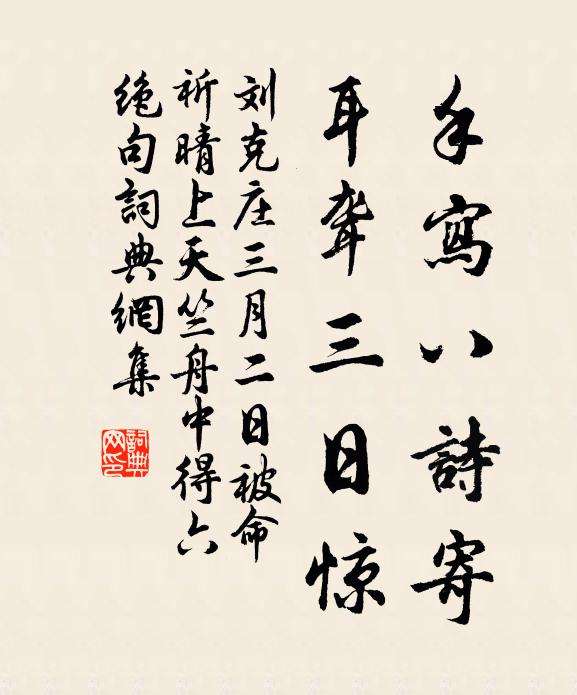 手寫八詩寄
耳聋三日惊
刘克庄三月二日被命
祈晴上天竺舟中得六
绝句詞典網集
詞典
网印